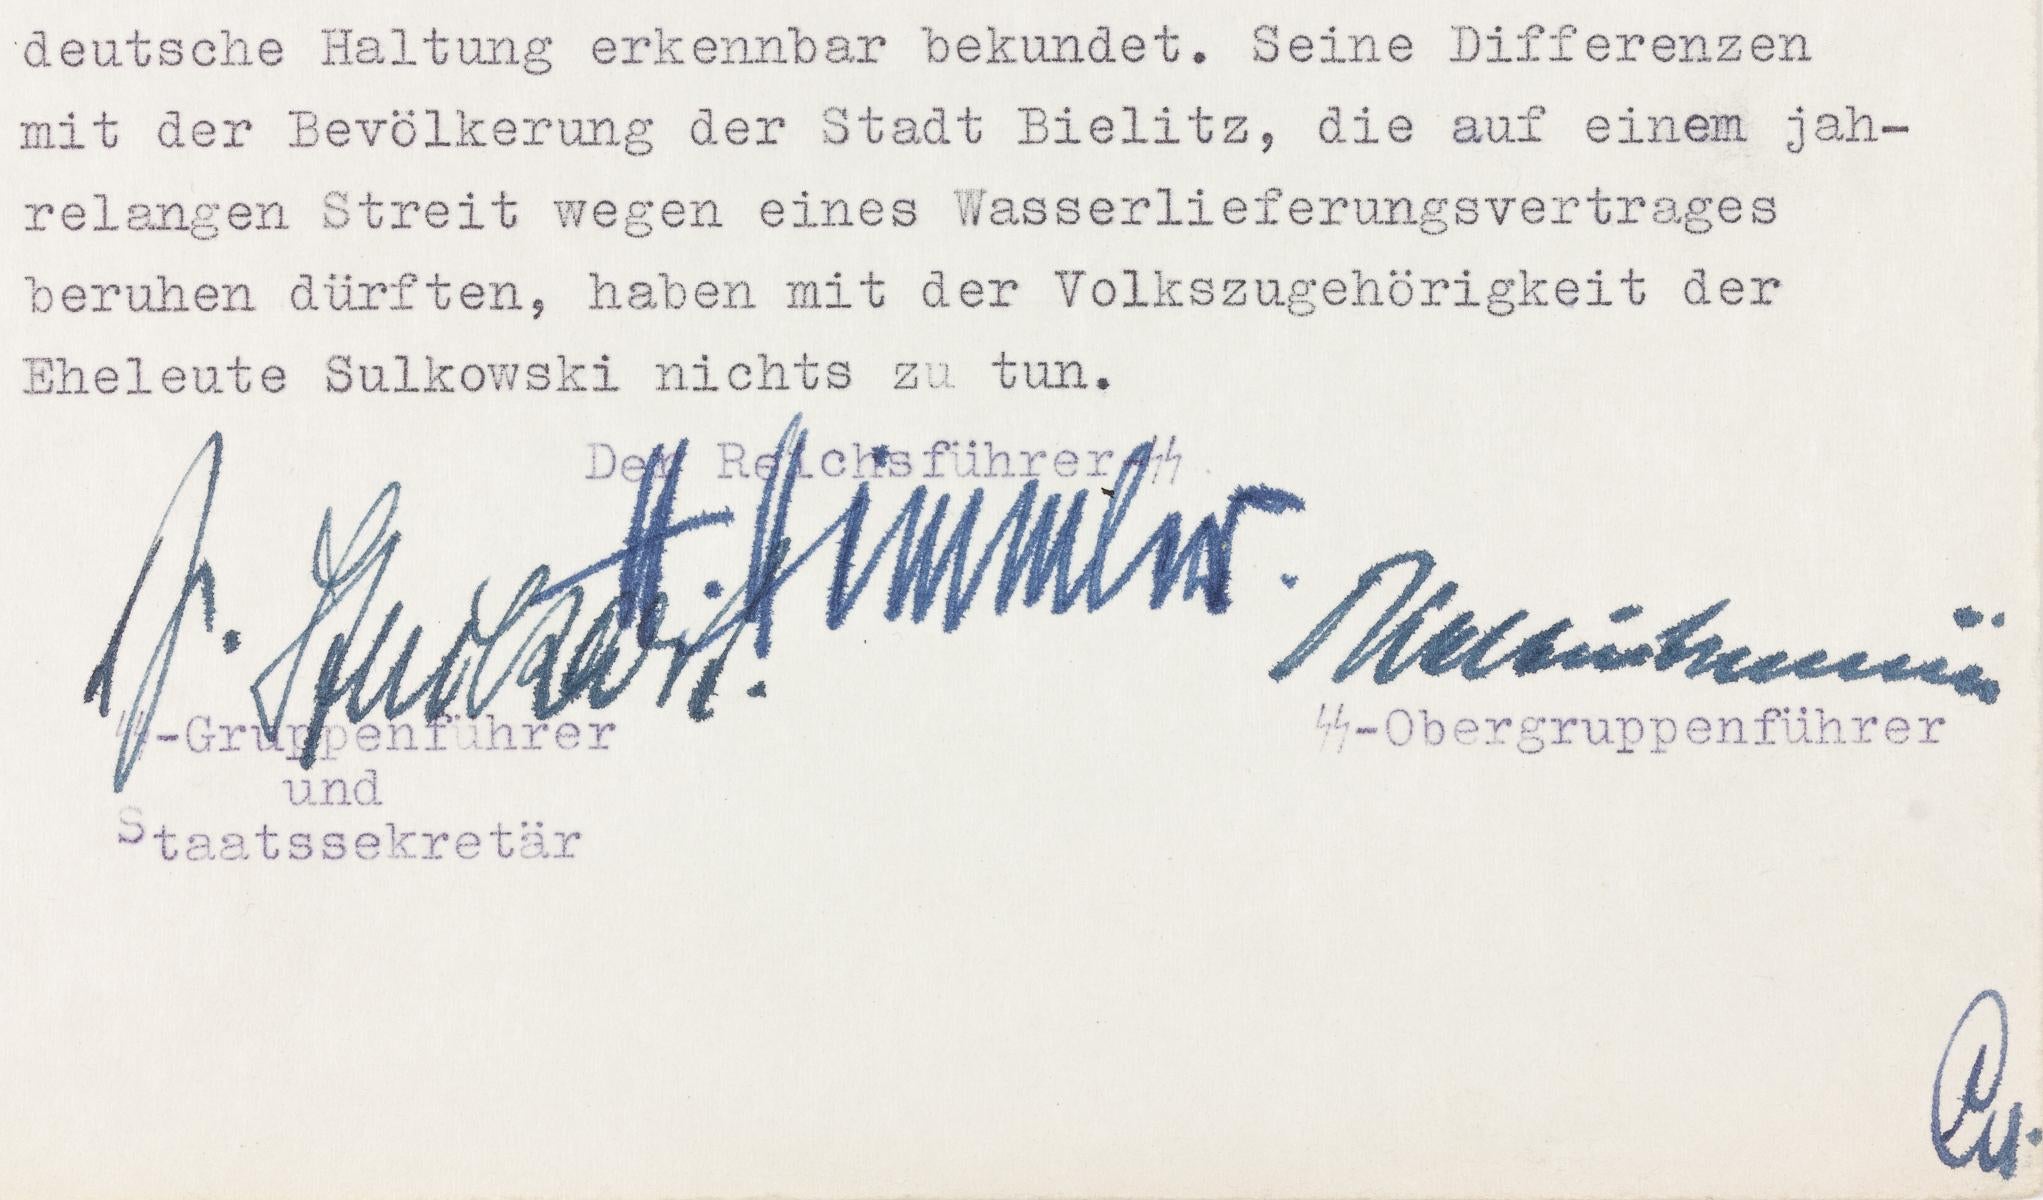 deutsche Haltung erkennbar bekundet. Seine Differenzen
mit der Bevölkerung der Stadt Bielitz, die auf einem jah-
relangen Streit wegen eines Wasserlieferungsvertrages
beruhen dürften, haben mit der Volkszugehörigkeit der
Eheleute Sulkowski nichts zu tun.
Der Reichsführer-SS
H. Himmler.
SS-Gruppenführer
und
Staatssekretär
SS-Obergruppenführer